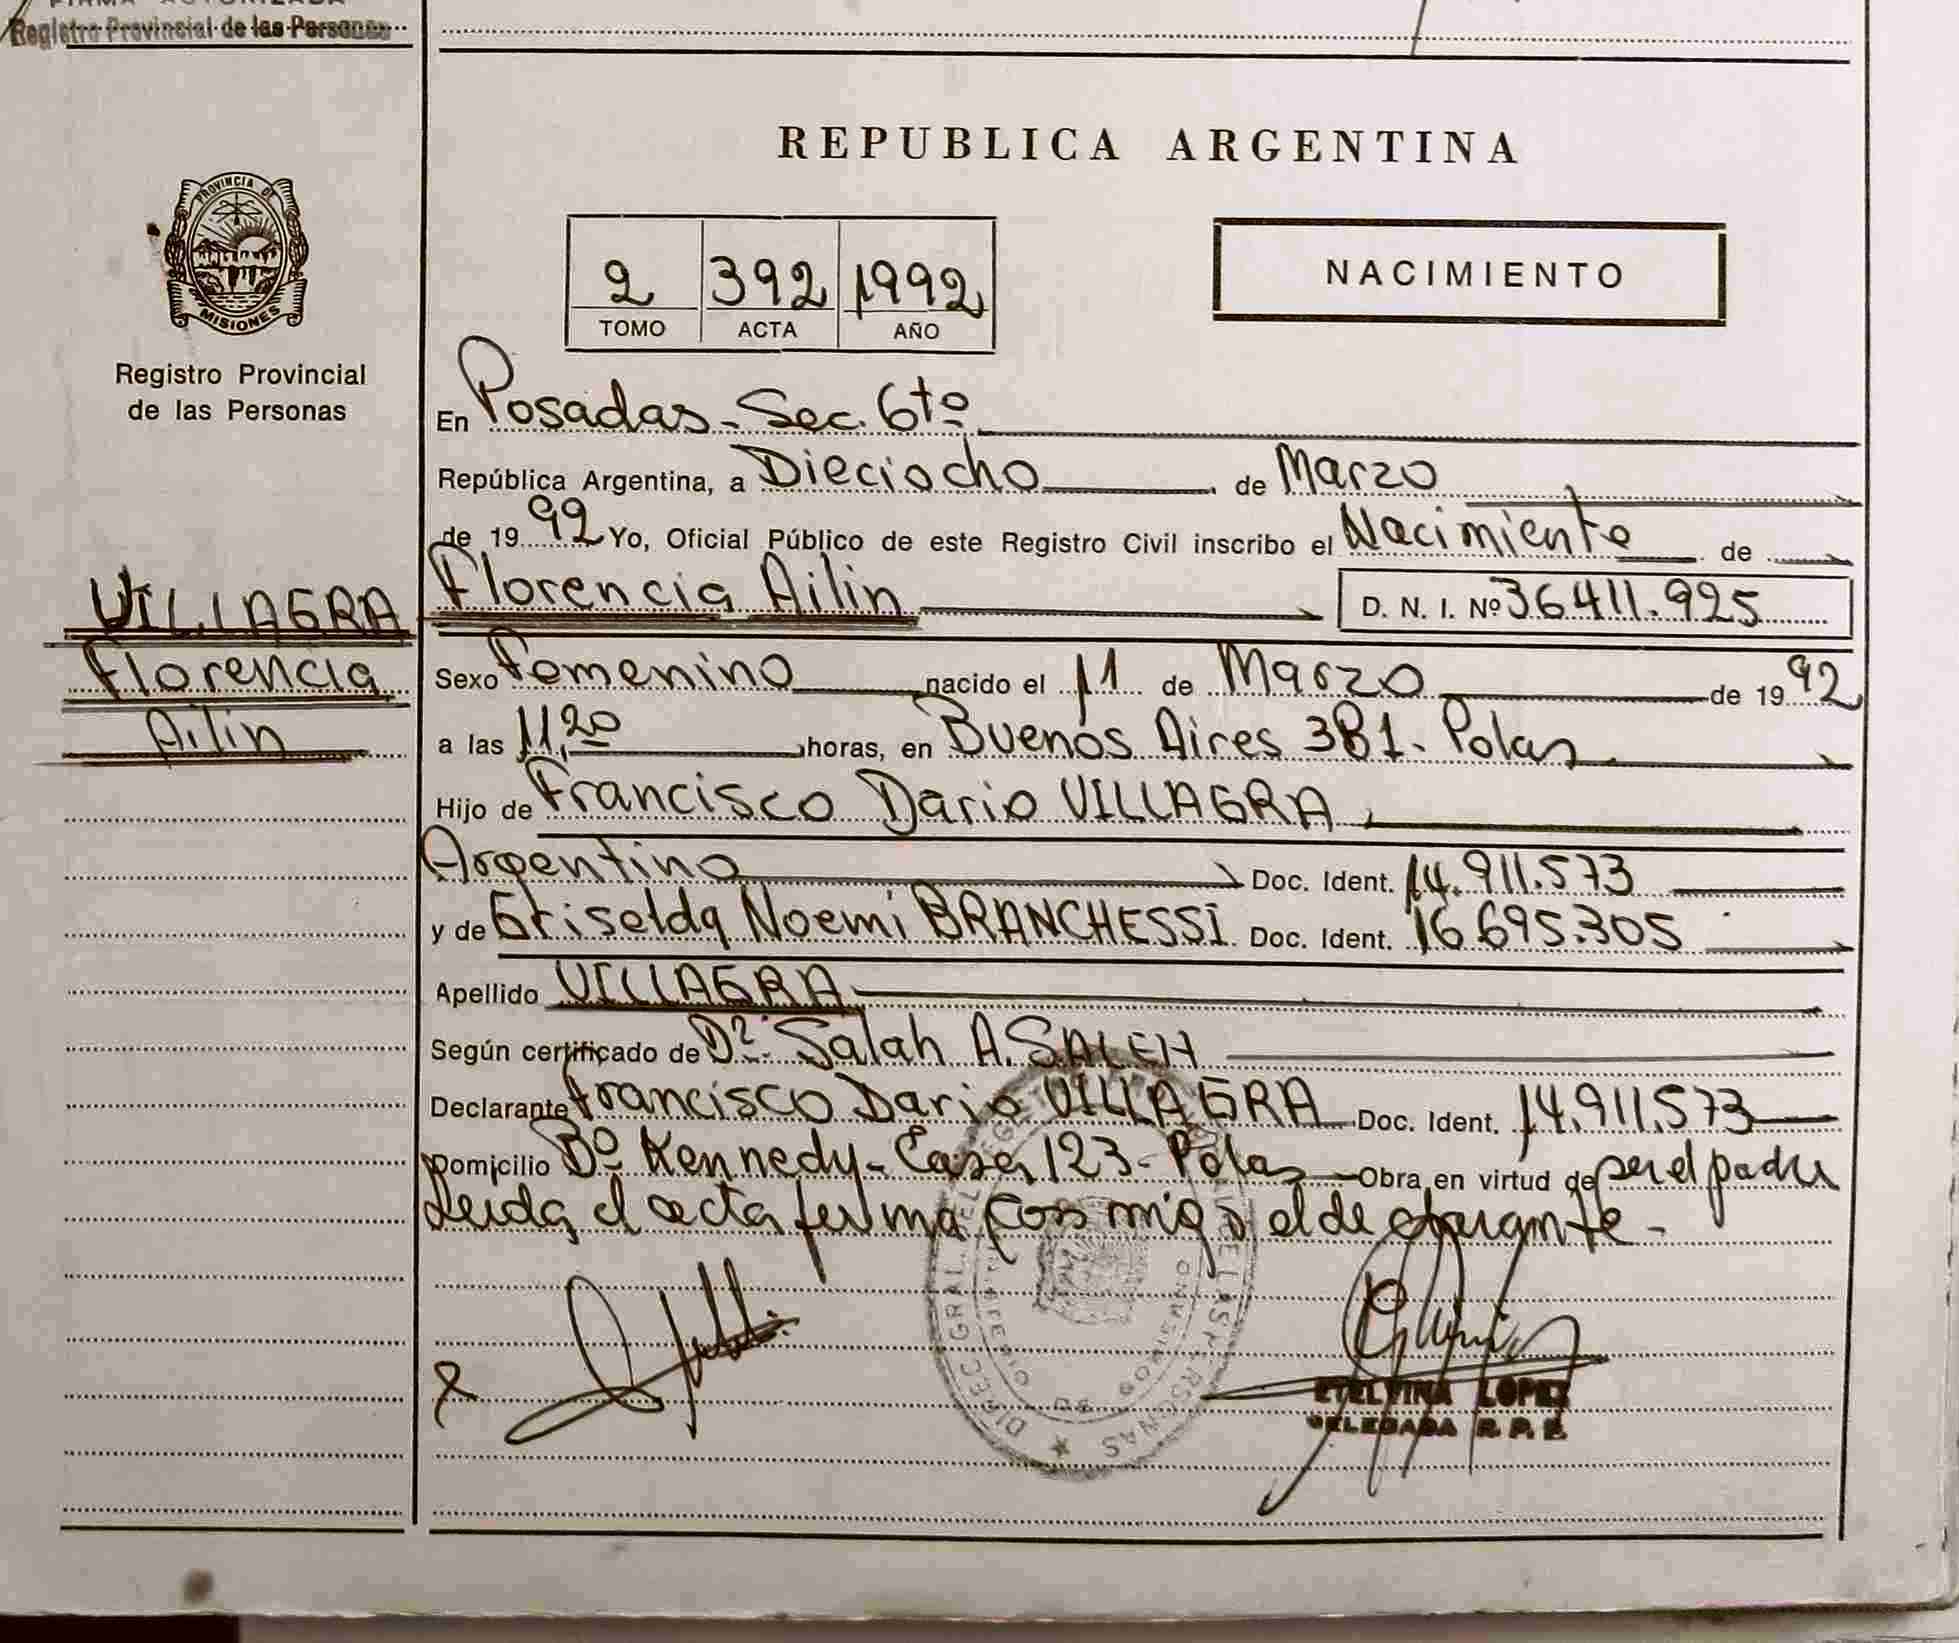 FIRMA AUTORIZADA
Registro Provincial de las Personas
PROVINCIA DE
MISIONES
Registro Provincial
de las Personas
VILLAGRA
Florencia
Ailin
REPUBLICA ARGENTINA
2 392 1992
TOMO ACTA AÑO
NACIMIENTO
En Posadas - Sec. 6to
República Argentina, a Dieciocho de Marzo
de 1992 Yo, Oficial Público de este Registro Civil inscribo el Nacimiento de
Florencia Ailin D. N. I. Nº 36.411.925
Sexo Femenino nacido el 11 de Marzo de 1992
a las 11,20 horas, en Buenos Aires 381 - Pdas
Hijo de Francisco Dario VILLAGRA
Argentino Doc. Ident. 14.911.573
y de Griselda Noemi BRANCHESSI Doc. Ident. 16.695.305
Apellido VILLAGRA
Según certificado de Dr. Salah A. SALEH
Declarante Francisco Dario VILLAGRA Doc. Ident. 14.911.573
Domicilio Bº Kennedy - Casa 123 - Pdas Obra en virtud de ser el padre
Leida el acta firma con migo el declarante -
ETELVINA LOPEZ
DELEGADA R. P. P.